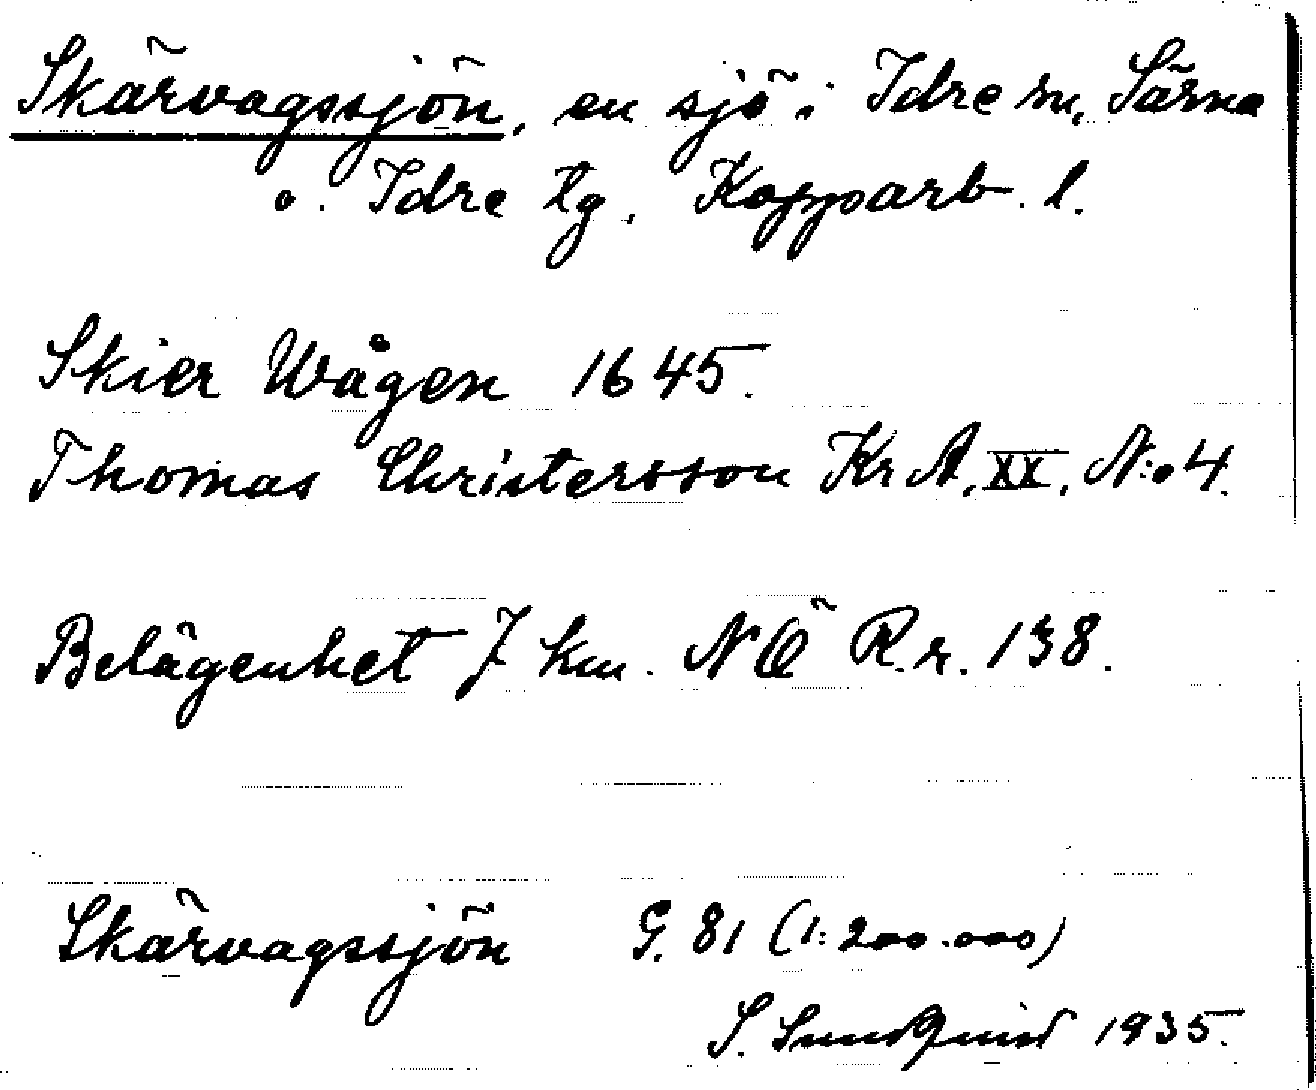 Skärvagssjön, en sjö i Idre sn, Särna
o. Idre tg, Kopparb. l.
Skier Wågen 1645.
Thomas Christersson Kr A, XX, N:o 4.
Belägenhet 7 km. NÖ R.r. 138.
Skärvagssjön G. 81 (1:200.000)
S. 1935.